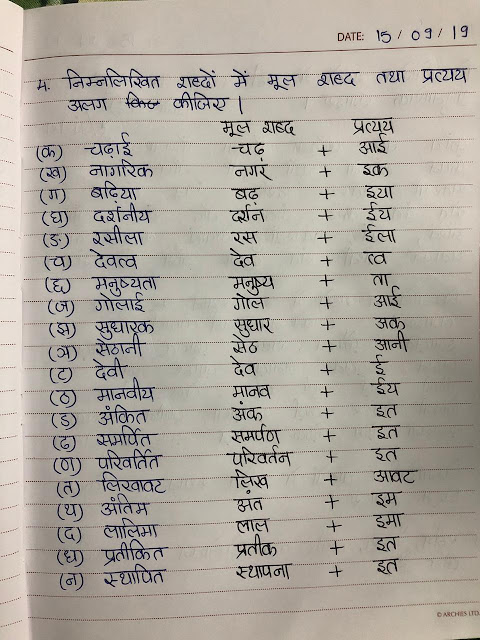 DATE: 15 / 09 / 19
4. निम्नलिखित शब्दों में मूल शब्द तथा प्रत्यय
अलग कीजिए |
मूल शब्द प्रत्यय
(क) चढ़ाई चढ़ + आई
(ख) नागरिक नगर + इक
(ग) बढ़िया बढ़ + इया
(घ) दर्शनीय दर्शन + ईय
(ङ) रसीला रस + ईला
(च) देवत्व देव + त्व
(छ) मनुष्यता मनुष्य + ता
(ज) गोलाई गोल + आई
(झ) सुधारक सुधार + अक
(ञ) सेठानी सेठ + आनी
(ट) देवी देव + ई
(ठ) मानवीय मानव + ईय
(ड) अंकित अंक + इत
(ढ) समर्पित समर्पण + इत
(ण) परिवर्तित परिवर्तन + इत
(त) लिखावट लिख + आवट
(थ) अंतिम अंत + इम
(द) लालिमा लाल + इमा
(ध) प्रतीकित प्रतीक + इत
(न) स्थापित स्थापना + इत
© ARCHIES LTD.